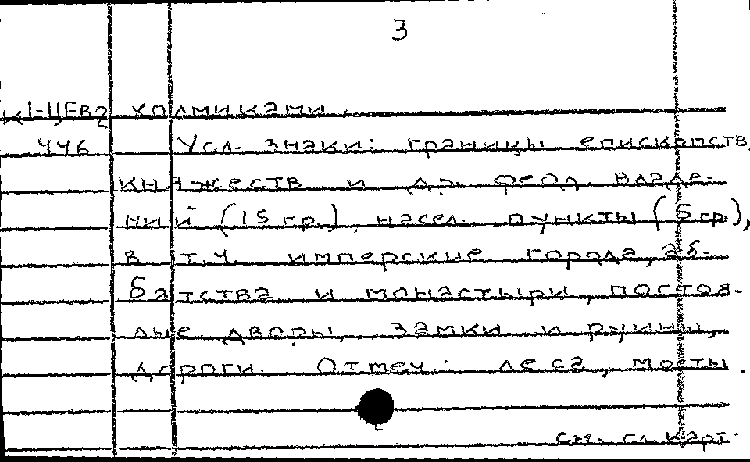 3
К1-ЦЕв2 холмиками.
446 Усл. знаки: границы епископств,
княжеств и др. феод. владе-
ний (15 гр.), насел. пункты (5 гр.),
в т.ч. имперские города, аб-
батства и монастыри, постоя-
лые дворы, замки и руины,
дороги. Отмеч.: леса, мосты.
см. сл. карт.